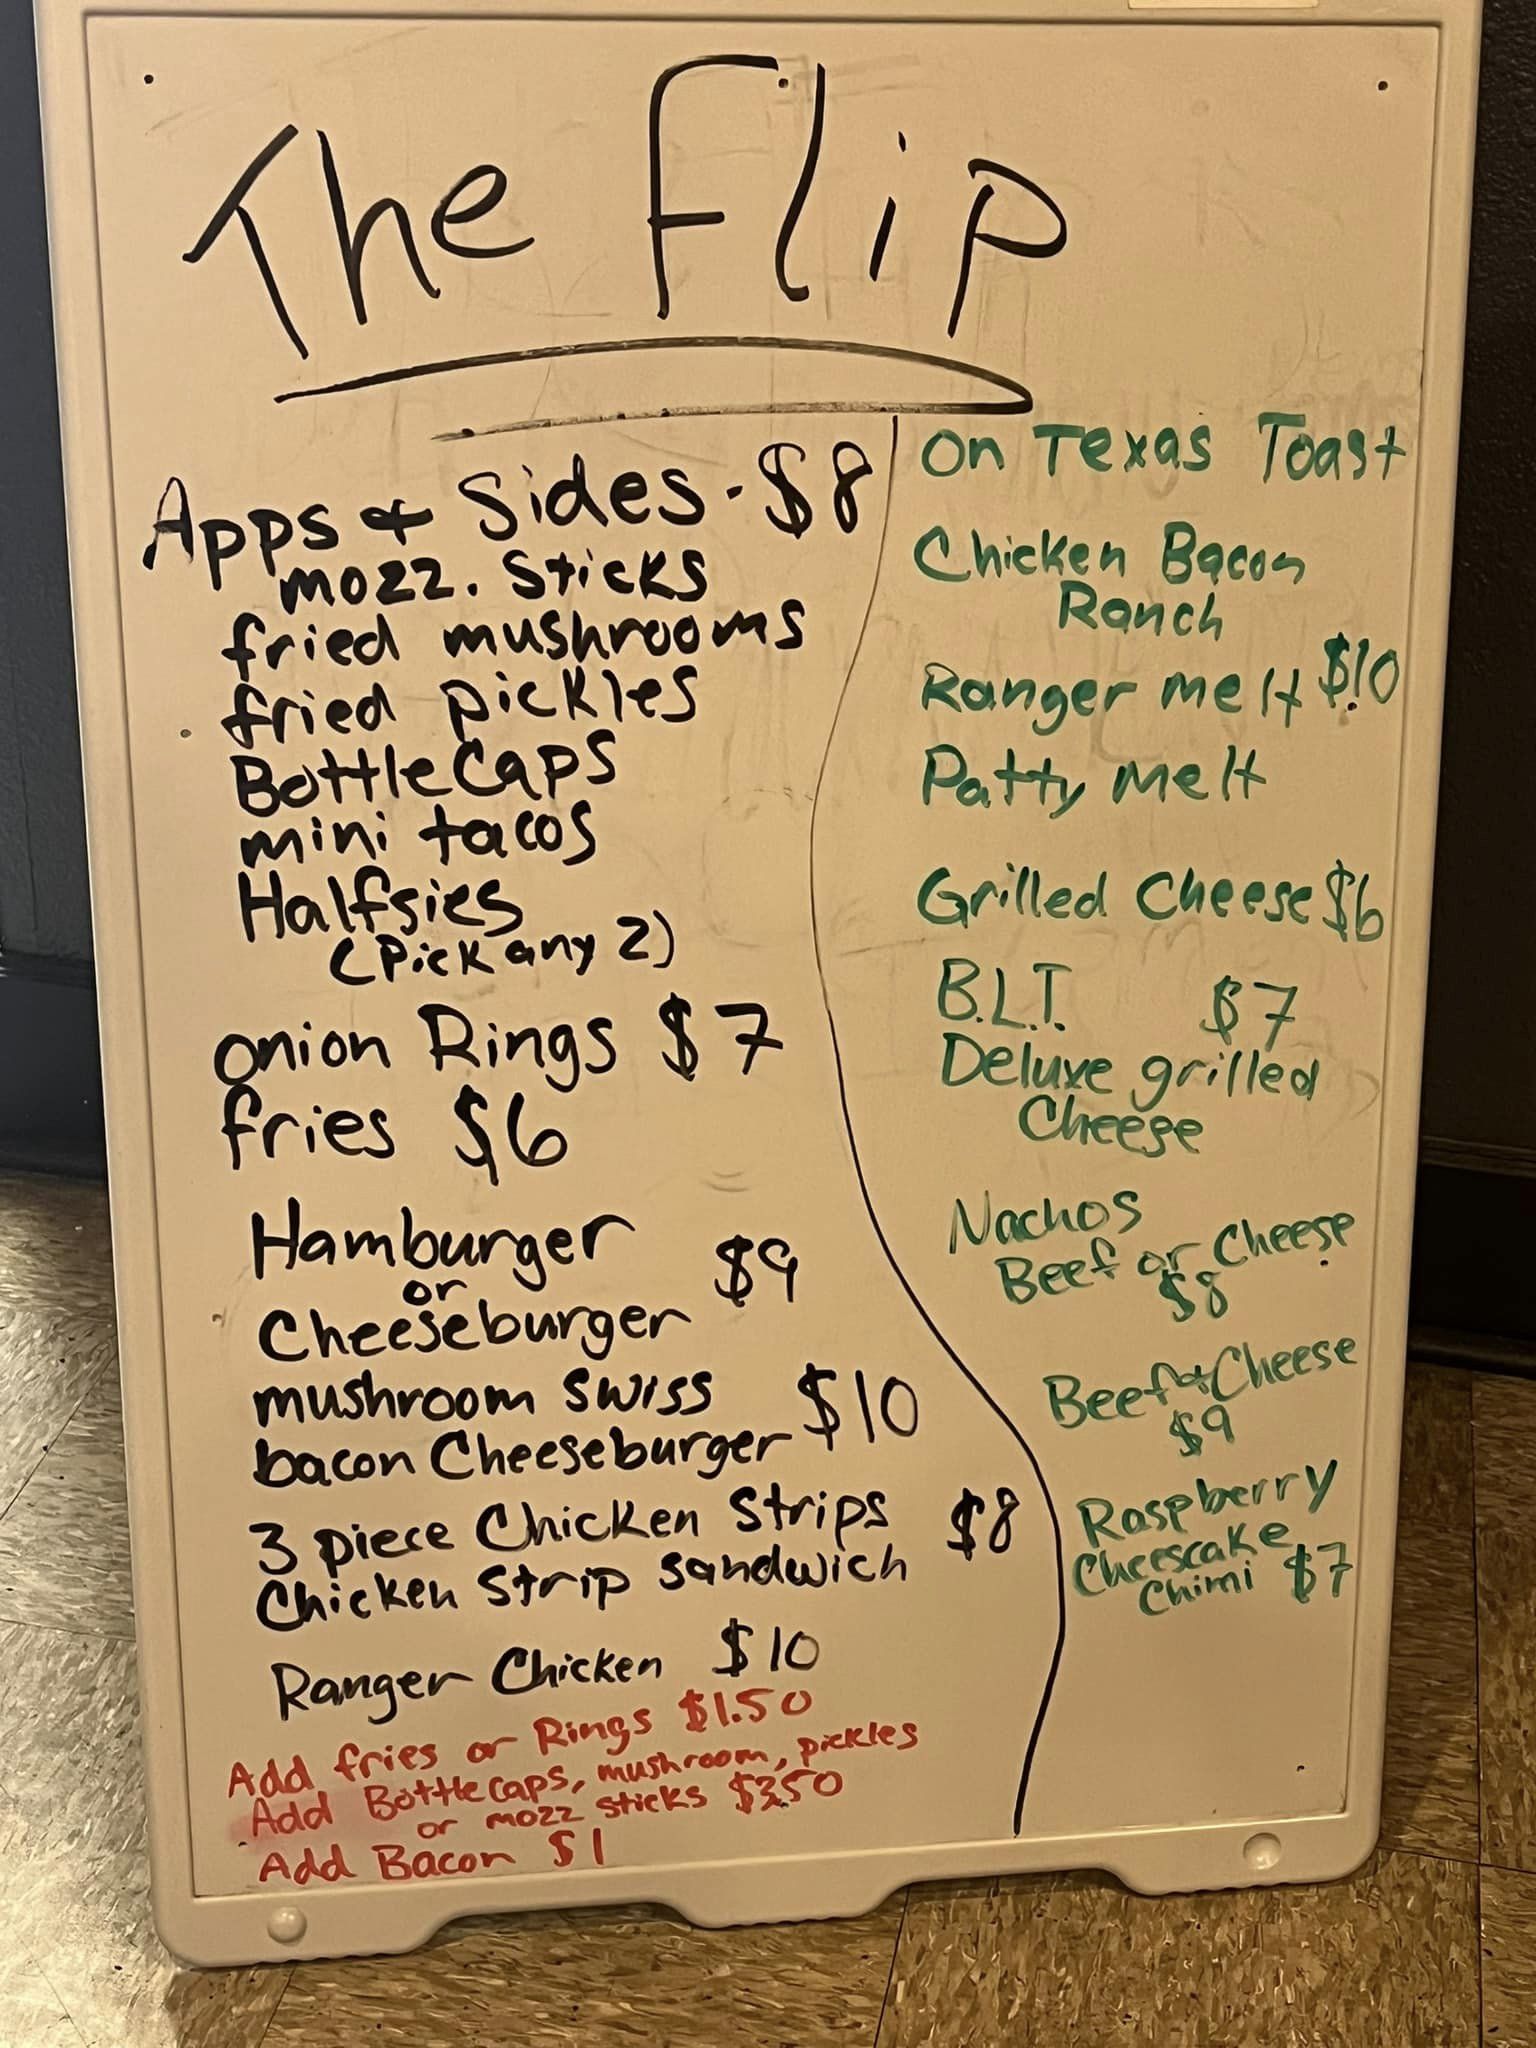 The Flip
Apps & Sides - $8
mozz. Sticks
fried mushrooms
fried pickles
BottleCaps
mini tacos
Halfsies
(Pick any 2)
onion Rings $7
fries $6
Hamburger
or
Cheeseburger $9
mushroom swiss
bacon Cheeseburger $10
3 piece Chicken Strips
Chicken Strip sandwich $8
Ranger Chicken $10
Add fries or Rings $1.50
Add Bottlecaps, mushroom, pickles
or mozz sticks $2.50
Add Bacon $1
On Texas Toast
Chicken Bacon
Ranch
Ranger melt $10
Patty melt
Grilled Cheese $6
B.L.T. $7
Deluxe grilled
Cheese
Nachos
Beef or Cheese
$8
Beef & Cheese
$9
Raspberry
Cheescake
Chimi $7